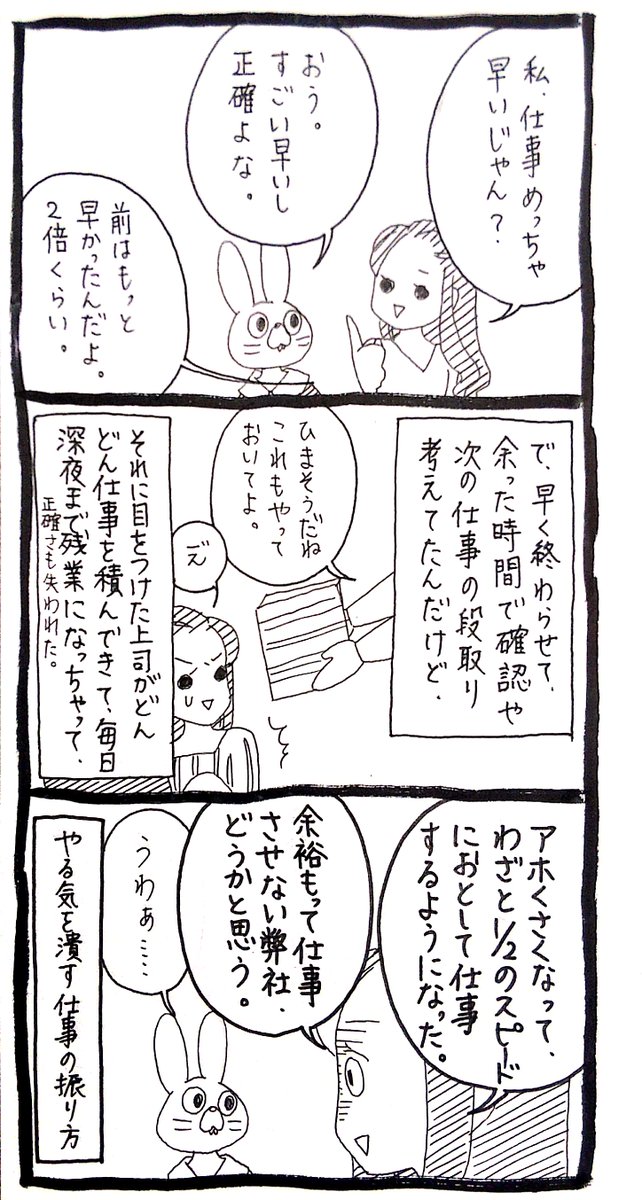 私、仕事めっちゃ
早いじゃん？
おう。
すごい早いし
正確よな。
前はもっと
早かったんだよ。
2倍くらい。
で、早く終わらせて、
余った時間で確認や
次の仕事の段取り
考えてたんだけど、
ひまそうだね
これもやって
おいてよ。
え
それに目をつけた上司がどん
どん仕事を積んできて、毎日
深夜まで残業になっちゃって、
正確さも失われた。
アホくさくなって、
わざと1/2のスピード
におとして仕事
するようになった。
余裕もって仕事
させない弊社、
どうかと思う。
うわぁ……
やる気を潰す仕事の振り方